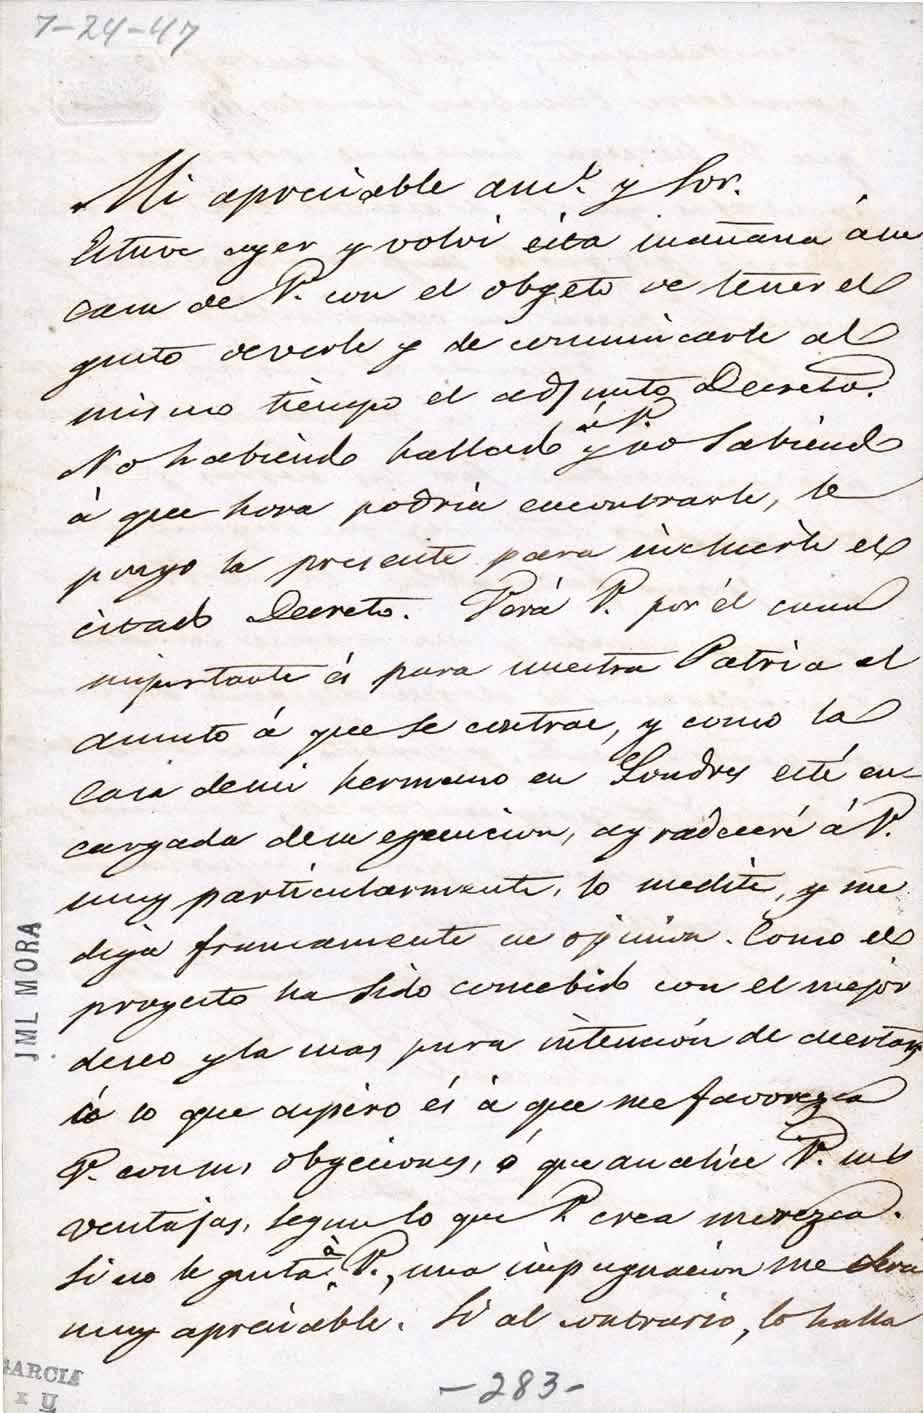 7-24-47
Mi apreciable am.º y Sor.
Estuve ayer y volvi esta mañana á su
casa de V. con el obgeto de tener el
gusto de verle y de comunicarle al
mismo tiempo el adjunto Decreto.
No habiendo hallado á V. y no sabiendo
á que hora podria encontrarle, le
pongo la presente para incluirle el
citado Decreto. Verá V. por él cuan
importante és para nuestra Patria el
asunto á que se contrae, y como la
Casa de mi hermano en Londres esté en-
cargada de su egecucion, agradeceré á V.
muy particularmente, lo medite, y me
diga francamente su opinion. Como el
proyecto ha sido concebido con el mejor
deseo y la mas pura intención de acertar,
á lo que aspiro és á que me favorezca
V. con sus obgeciones, ó que analice V. sus
ventajas, segun lo que V. crea merezca.
Si no le gusta á V., una impugnacion me será
muy apreciable. Si al contrario, lo halla
JML MORA
GARCIA
-283-